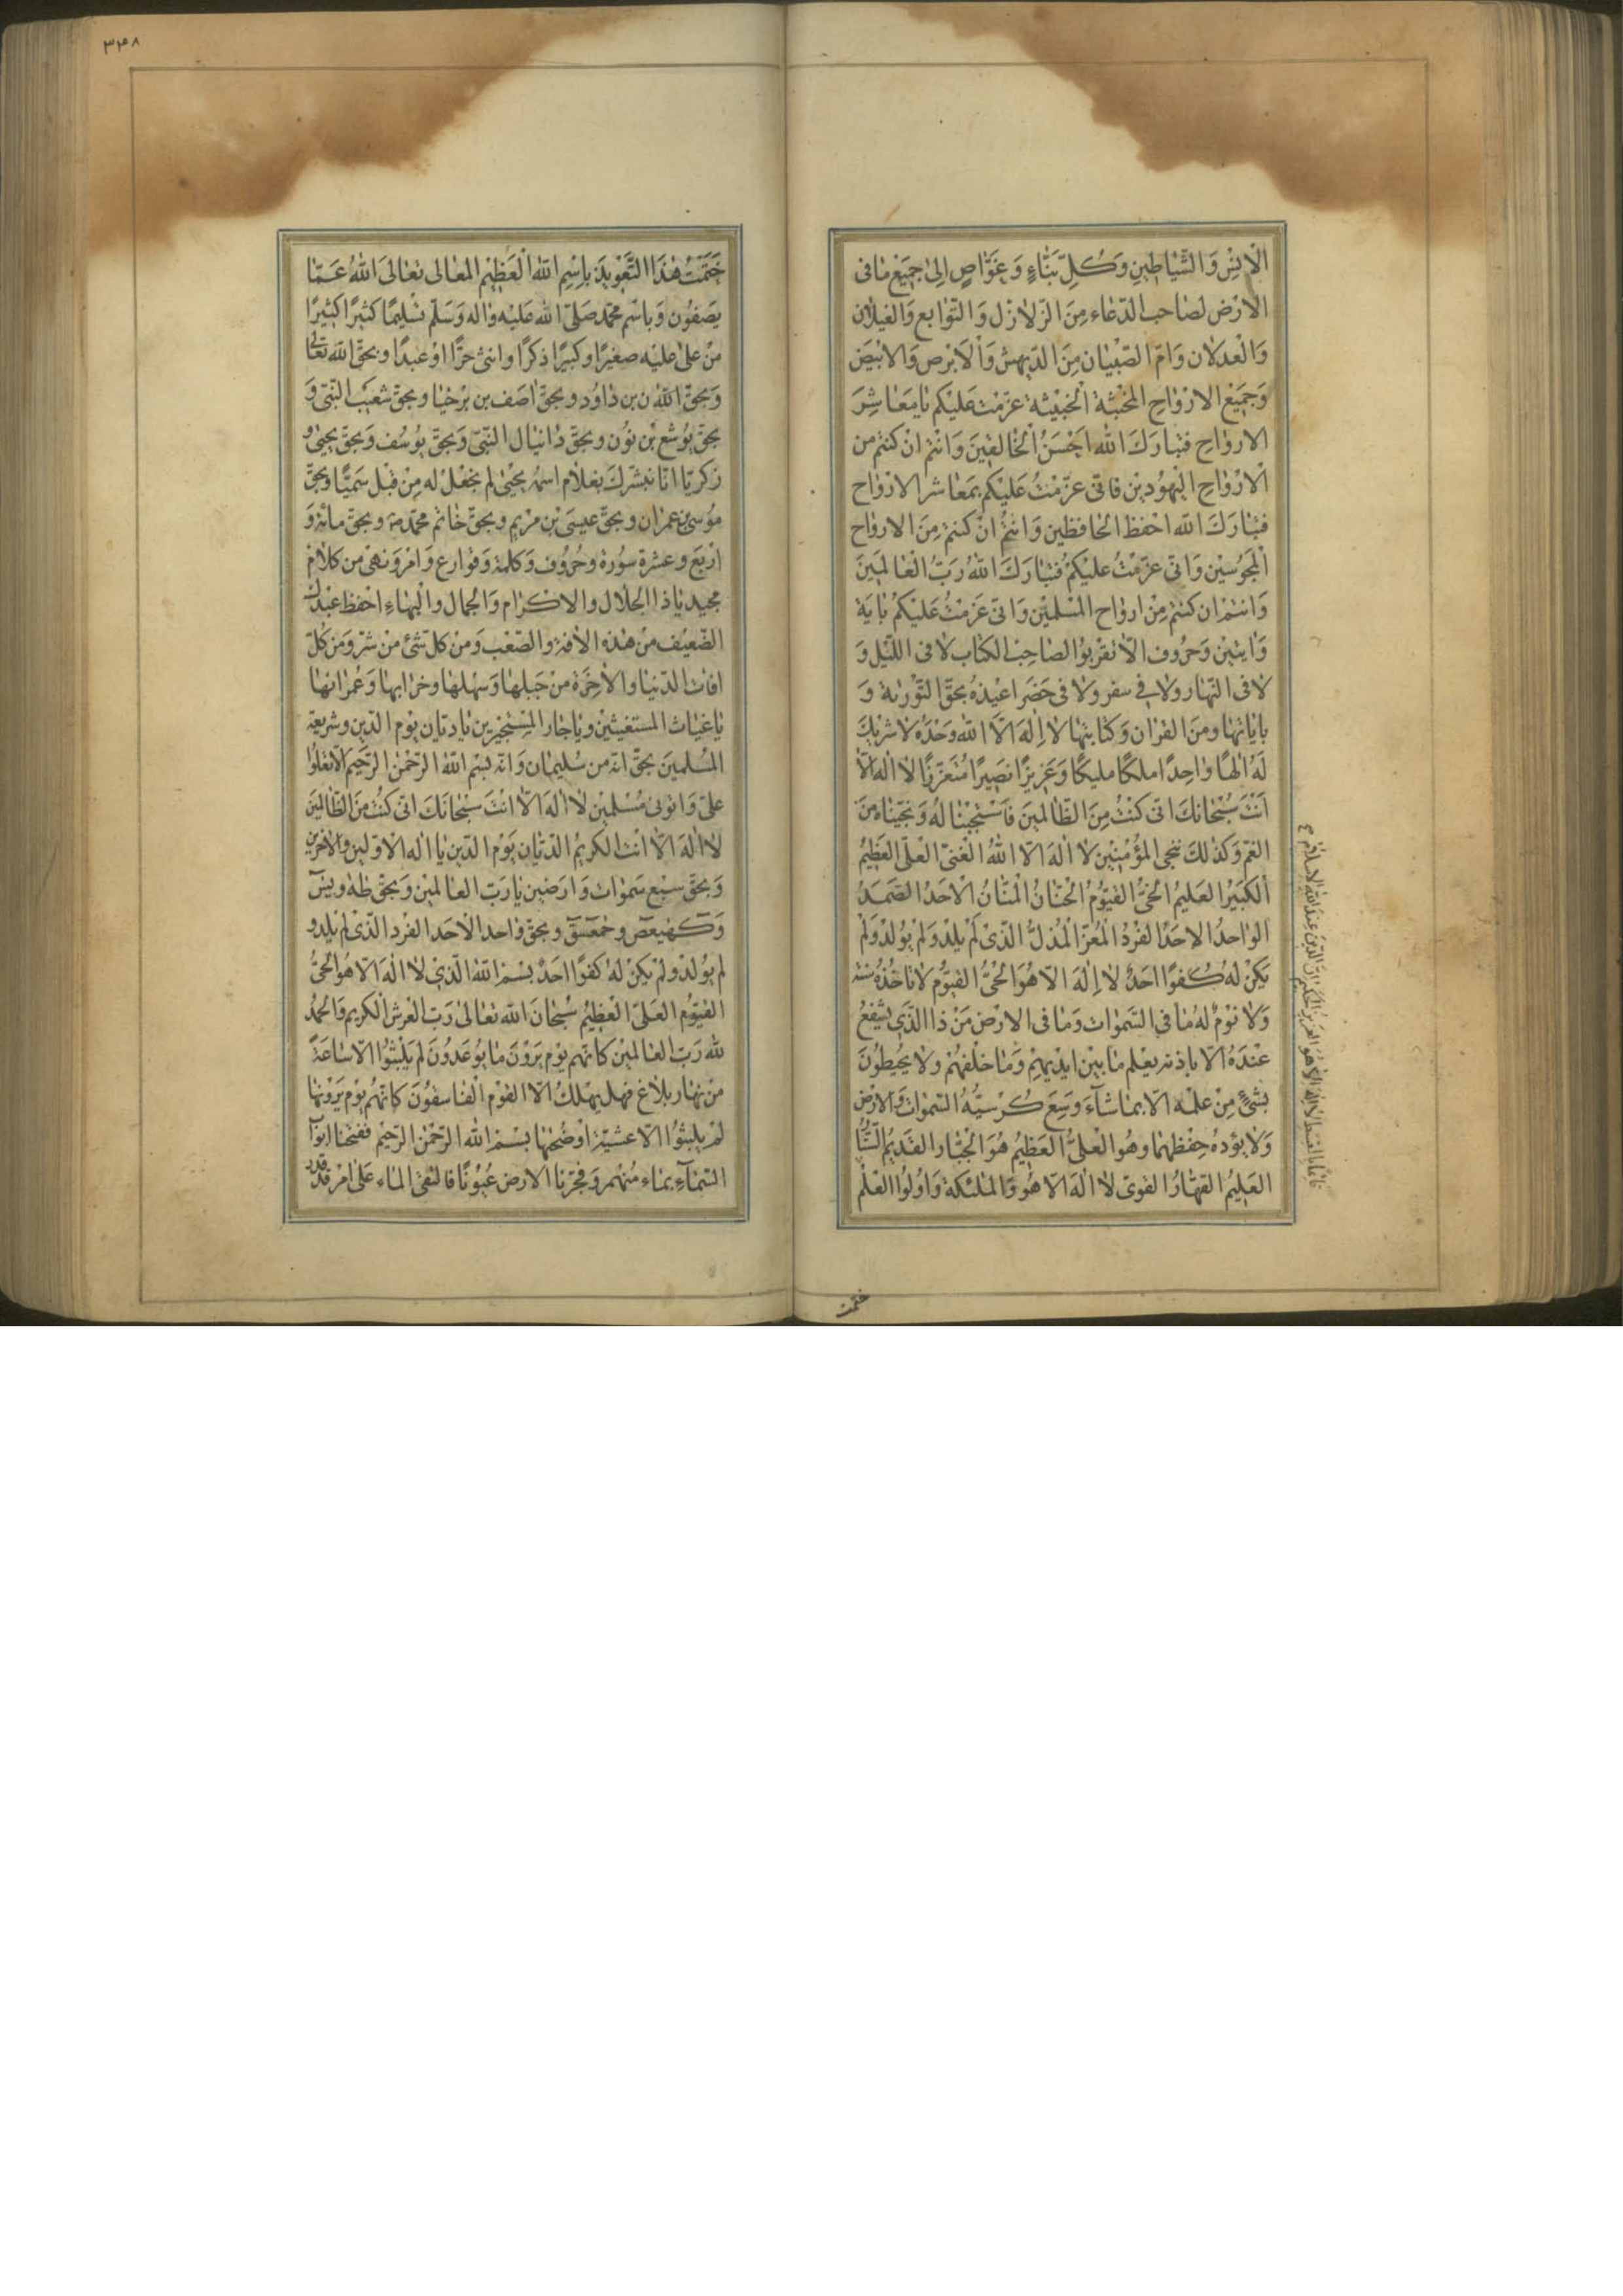 الْاِنْسِ وَالشَّيَاطِينِ وَكُلِّ بَنَّاءٍ وَغَوَّاصٍ اِلىٰ جَمِيعِ مٰا فى
الاَرْضِ لصَاحب الدّعَاء مِنَ الزّلازل وَالتّوَابع وَالغيلان
وَالْعدلان وَامّ الصّبْيَان مِنَ الدّيهش وَالْاَبْرص وَالابْيَضَ
وَجَمِيع الارْوَاحِ المخْبثة الْخبيثَة عزّمْت عَليْكم يٰا مَعَاشِرَ
الارواحِ فتبارَكَ الله اَحْسَنُ الْخٰالقينَ وَانْتُم انْ كنتم من
الْارْوَاحِ الْيَهُود بن فانّى عزّمْتُ عَليْكم بمَعاشر الارْوَاح
فتبَارَكَ اللّه احْفظ الحافظين وَانتُمْ انْ كنتم مِنَ الارواح
الْمَجوُسيْن وَانّى عزّمْتُ عليْكمْ فتبٰارَكَ اللهُ رَبّ الْعٰالَمينَ
وَانتمْ ان كنتم مِنْ ارواح المسْلميْن وَانّى عَزمْتُ عَليْكمُ بايَة
وَايتيْن وَحرُوف الّا تقْربوُا الصَاحِبْ الكتاب لا فى اللّيْل وَ
لا فى النّهار ولا فِے سفر ولا فى حَضَر اعيْذهُ بحقّ التّوْرية وَ
بايٰاتهٰا ومنَ القرْان وَكتابتهٰا لا اِلٰهَ الّا الله وَحْدَهُ لا شرِيْكَ
لَهُ الٰهًا وٰاحِدًا ملكًا مليْكًا وَعَزيزًا نصَيرًا مُتَعَزّزًا لا الٰه الّا
اَنْتَ سُبْحَانَكَ انّى كنْتُ مِنَ الظّالمينَ فَاسْتَجبْنٰا لهُ وَنجيّناه مِنَ
الغمّ وَكذٰلكَ ننجى المؤْمنينَ لا الٰهَ الّا اللهُ الْغنىّ الْعلىّ الْعَظيمُ
الكبَيْرُ العَليمُ الحىُّ القيّوُمُ الْحنّانُ الْمَنّانُ الْاَحَدُ الصّمَدُ
الواحدُ الاحَدُ الفَرْدُ الْمعُزّ الْمُذلُّ الّذى لَمْ يلدْ وَلَمْ يوُلدْ وَلَمْ
يَكنْ لهُ كُفوًا احَدٌ لا اِلٰهَ الّا هُوَ الْحىُّ القيّوُم لا تاخُذُهُ سنَة
وَلا نَوْمٌ لهُ مٰا فى السّمٰوات وَمٰا فى الارْض مَنْ ذا الّذَى يَشْفعُ
عنْدَهُ الّا باذنه يعْلم مٰا بيْن ايْديهمْ وَمٰا خلْفهُمْ ولا يحُيطوُنَ
بشئٍ مِنْ علمْه الّا بمٰا شآءَ وَسِعَ كُرْسيّهُ السّمٰوات والارْضَ
وَلا يؤدهُ حِفظهمٰا وهُو الْعلىُّ العَظيمُ هُوَ الْجبّار القَديمُ
العَليمُ القَهّارُ القوىّ لا الٰهَ الّا هُوَ وَالْملٰئكَة وَاوُلوُا العْلْم
قَائمًا بالقسط لا اله الّا هُوَ العَزيزُ الحَكيم انّ الدّينَ عندَ الله الاسلام
ختمت
٣٤٨
خَتَمْتُ هٰذَا التَّعْويذَ بِاِسْمِ اللّٰهِ الْعَظيْم المعٰالى تعٰالىَ اللهُ عَمّٰا
يَصفوُن وَباسْم محمّد صَلّى الله عَليْه وَاله وَسَلّم تسْليمًا كثيرًا كثيرًا
منْ علىٰ عليْه صغيرًا وكبيرًا ذكرًا وانثىٰ حرًّا اوْ عبدًا وبحَقّ الله تعالى
وَبحقّ بن دٰاوُد وبحقّ اٰصف بن برْخيٰا وبحقّ شعَيْب النّبىّ وَ
بحقّ يوُشع بْن نوُن وبحقّ دٰانيٰال النّبىّ وَبحقّ يوُسُف وَبحقّ يحيىٰ و
زكريّا انّا نبشّركَ بغلام اسمُهُ يحْيىٰ لم نجْعَلْ له مِنْ قبْل سَميًّا وبحقّ
موُسىٰ بن عمرٰان وبحقّ عيسَى بْن مرْيم وبحقّ خٰاتم محمّد وبحقّ مائة وَ
ارْبَع وعشرة سوُرة وحرُوُف وَكلمة وَقوٰارع وَامْر وَنهْى من كلٰام
مجيد يٰا ذا الجلٰال والاكرام وَالجمال والْبهٰاء احْفظ عبْدك
الضّعيْف منْ هٰذه الاٰفة والصّعْب وَمنْ كلّ شئ منْ شرّ وَمنْ كلّ
اٰفات الدّنيٰا والاٰخرَة منْ جَبلهٰا وَسهْلهٰا وخرٰابهٰا وَعُمْرٰانهٰا
يٰا غيٰاث المستغيثيْن ويٰا جار المسْتجيْرين يٰا ديّان يوْم الدّين وشريعة
المسْلمينَ بحقّ انّه من سُليمٰان وَانّه بسْم اللّٰه الرّحْمٰن الرّحيم الّا تعْلوُا
علىّ وَاتونى مُسْلمينْ لا الٰهَ الّا انْتَ سبْحٰانَكَ انّى كنْتُ منَ الظّالمينَ
لا الٰهَ الّا انْت الكريمُ الدّيّان يَوْم الدّين يٰا الٰه الاوّلين والاٰخرين
وَبحقّ سبْع سَمٰوات وَارَضين يٰا رَبّ العٰالمين وَبحقّ طٰه ويٰسٓ
وَكٓهيعٓصٓ وحٰمٓعٓسٓقٓ وبحقّ وٰاحد الاحَد الفرْد الّذىْ لم يلد و
لم يوُلدْ ولمْ يكنْ لهُ كفوًا احَدٌ بسْم اللّٰه الّذىْ لا الٰهَ الّا هُو الحىُّ
القيّوُم العَلىّ الْعظيْم سُبْحٰانَ اللّٰه تعٰالىٰ رَبّ العرْش الْكريم وَالْحمْدُ
للّٰه رَبّ العٰالمين كانّهم يوْم يَرَوْنَ مٰا يوُعَدُونَ لم يلْبثوُا الّا سٰاعَةً
منْ نهٰار بلٰاغ فهل يهْلكُ الّا القوْم الْفٰاسقوُنَ كانّهُم يوْم يَرَوْنهٰا
لمْ يلبثوُا الّا عشيّةً اوْ ضحٰهٰا بسْم اللّٰه الرّحْمٰن الرّحيم ففتحْنٰا ابوابَ
السّمٰآءِ بمٰاء منْهمر وَفجّرْنا الارْض عيوُنًا فالتقىَ المٰاء علىٰ امْر قدْ قدر